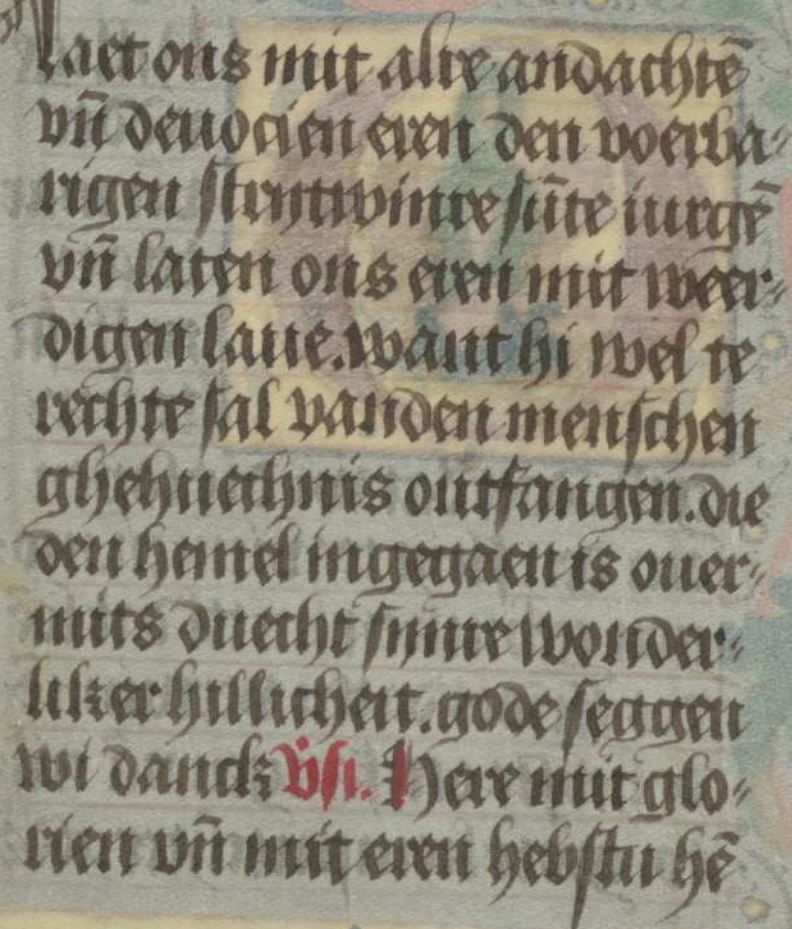 Laet ons mit alre andachtē
vn̄ deuocien eren den voerba-
rigen strytwinre sūte iurgē
vn̄ laten ons eren mit weer-
digen laue. want hi wel te
rechte sal vanden menschen
ghehuechnis ontfangen. die
den hemel ingegaen is ouer-
mits duecht sinre wonder-
liker hillicheit. gode seggen
wi danck v̄si. Here mit glo-
rien vn̄ mit eren hebstu hē